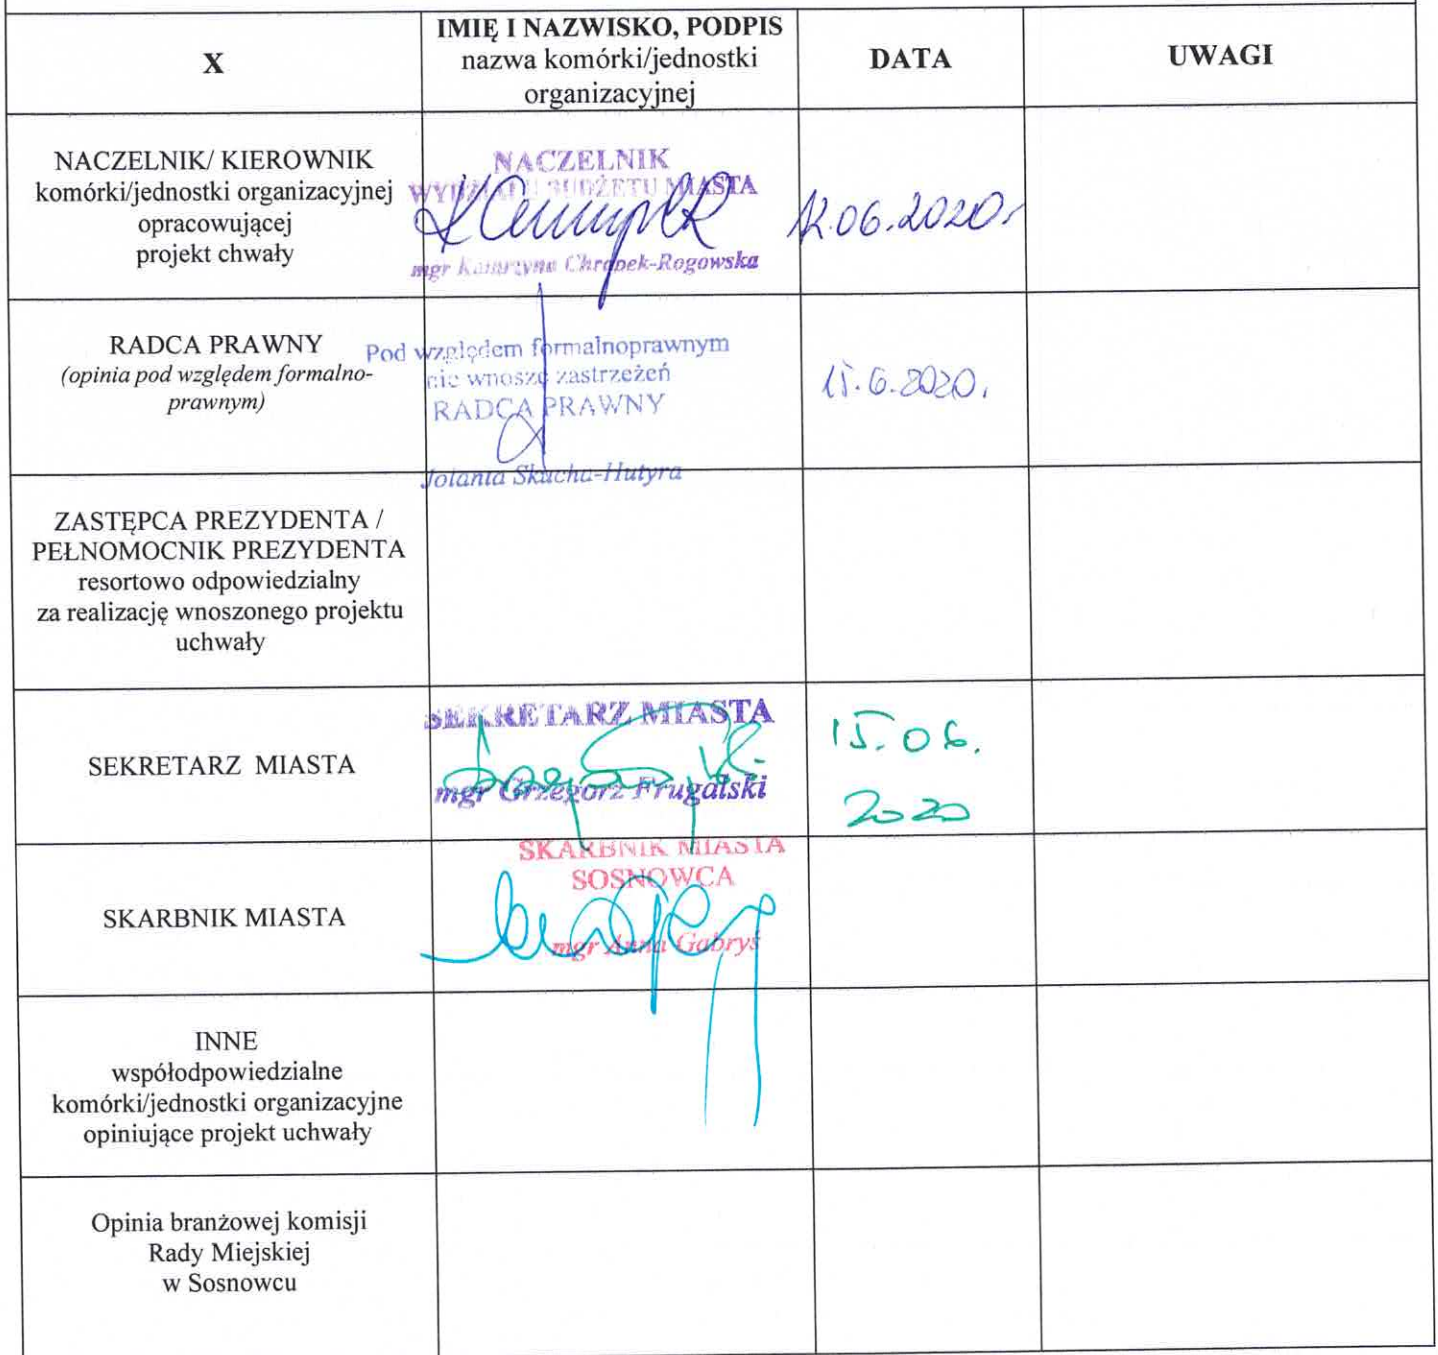 X
IMIĘ I NAZWISKO, PODPIS
nazwa komórki/jednostki
organizacyjnej
DATA
UWAGI
NACZELNIK/ KIEROWNIK
komórki/jednostki organizacyjnej
opracowującej
projekt chwały
NACZELNIK
WYDZIAŁU BUDŻETU MIASTA
mgr Katarzyna Chrapek-Rogowska
12.06.2020r
RADCA PRAWNY
(opinia pod względem formalno-
prawnym)
Pod względem formalnoprawnym
nie wnoszę zastrzeżeń
RADCA PRAWNY
Jolanta Skucha-Hutyra
15.6.2020.
ZASTĘPCA PREZYDENTA /
PEŁNOMOCNIK PREZYDENTA
resortowo odpowiedzialny
za realizację wnoszonego projektu
uchwały
SEKRETARZ MIASTA
SEKRETARZ MIASTA
mgr Grzegorz Frugalski
15.06.
2020
SKARBNIK MIASTA
SKARBNIK MIASTA
SOSNOWCA
mgr Anna Gabryś
INNE
współodpowiedzialne
komórki/jednostki organizacyjne
opiniujące projekt uchwały
Opinia branżowej komisji
Rady Miejskiej
w Sosnowcu